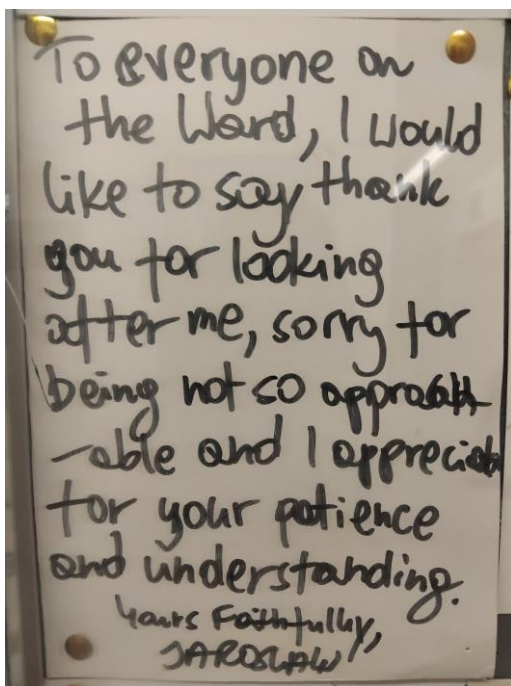 To everyone on
the Ward, I would
like to say thank
you for looking
after me, sorry for
being not so approach
-able and I appreciate
for your patience
and understanding.
Yours Faithfully,
JAROSŁAW